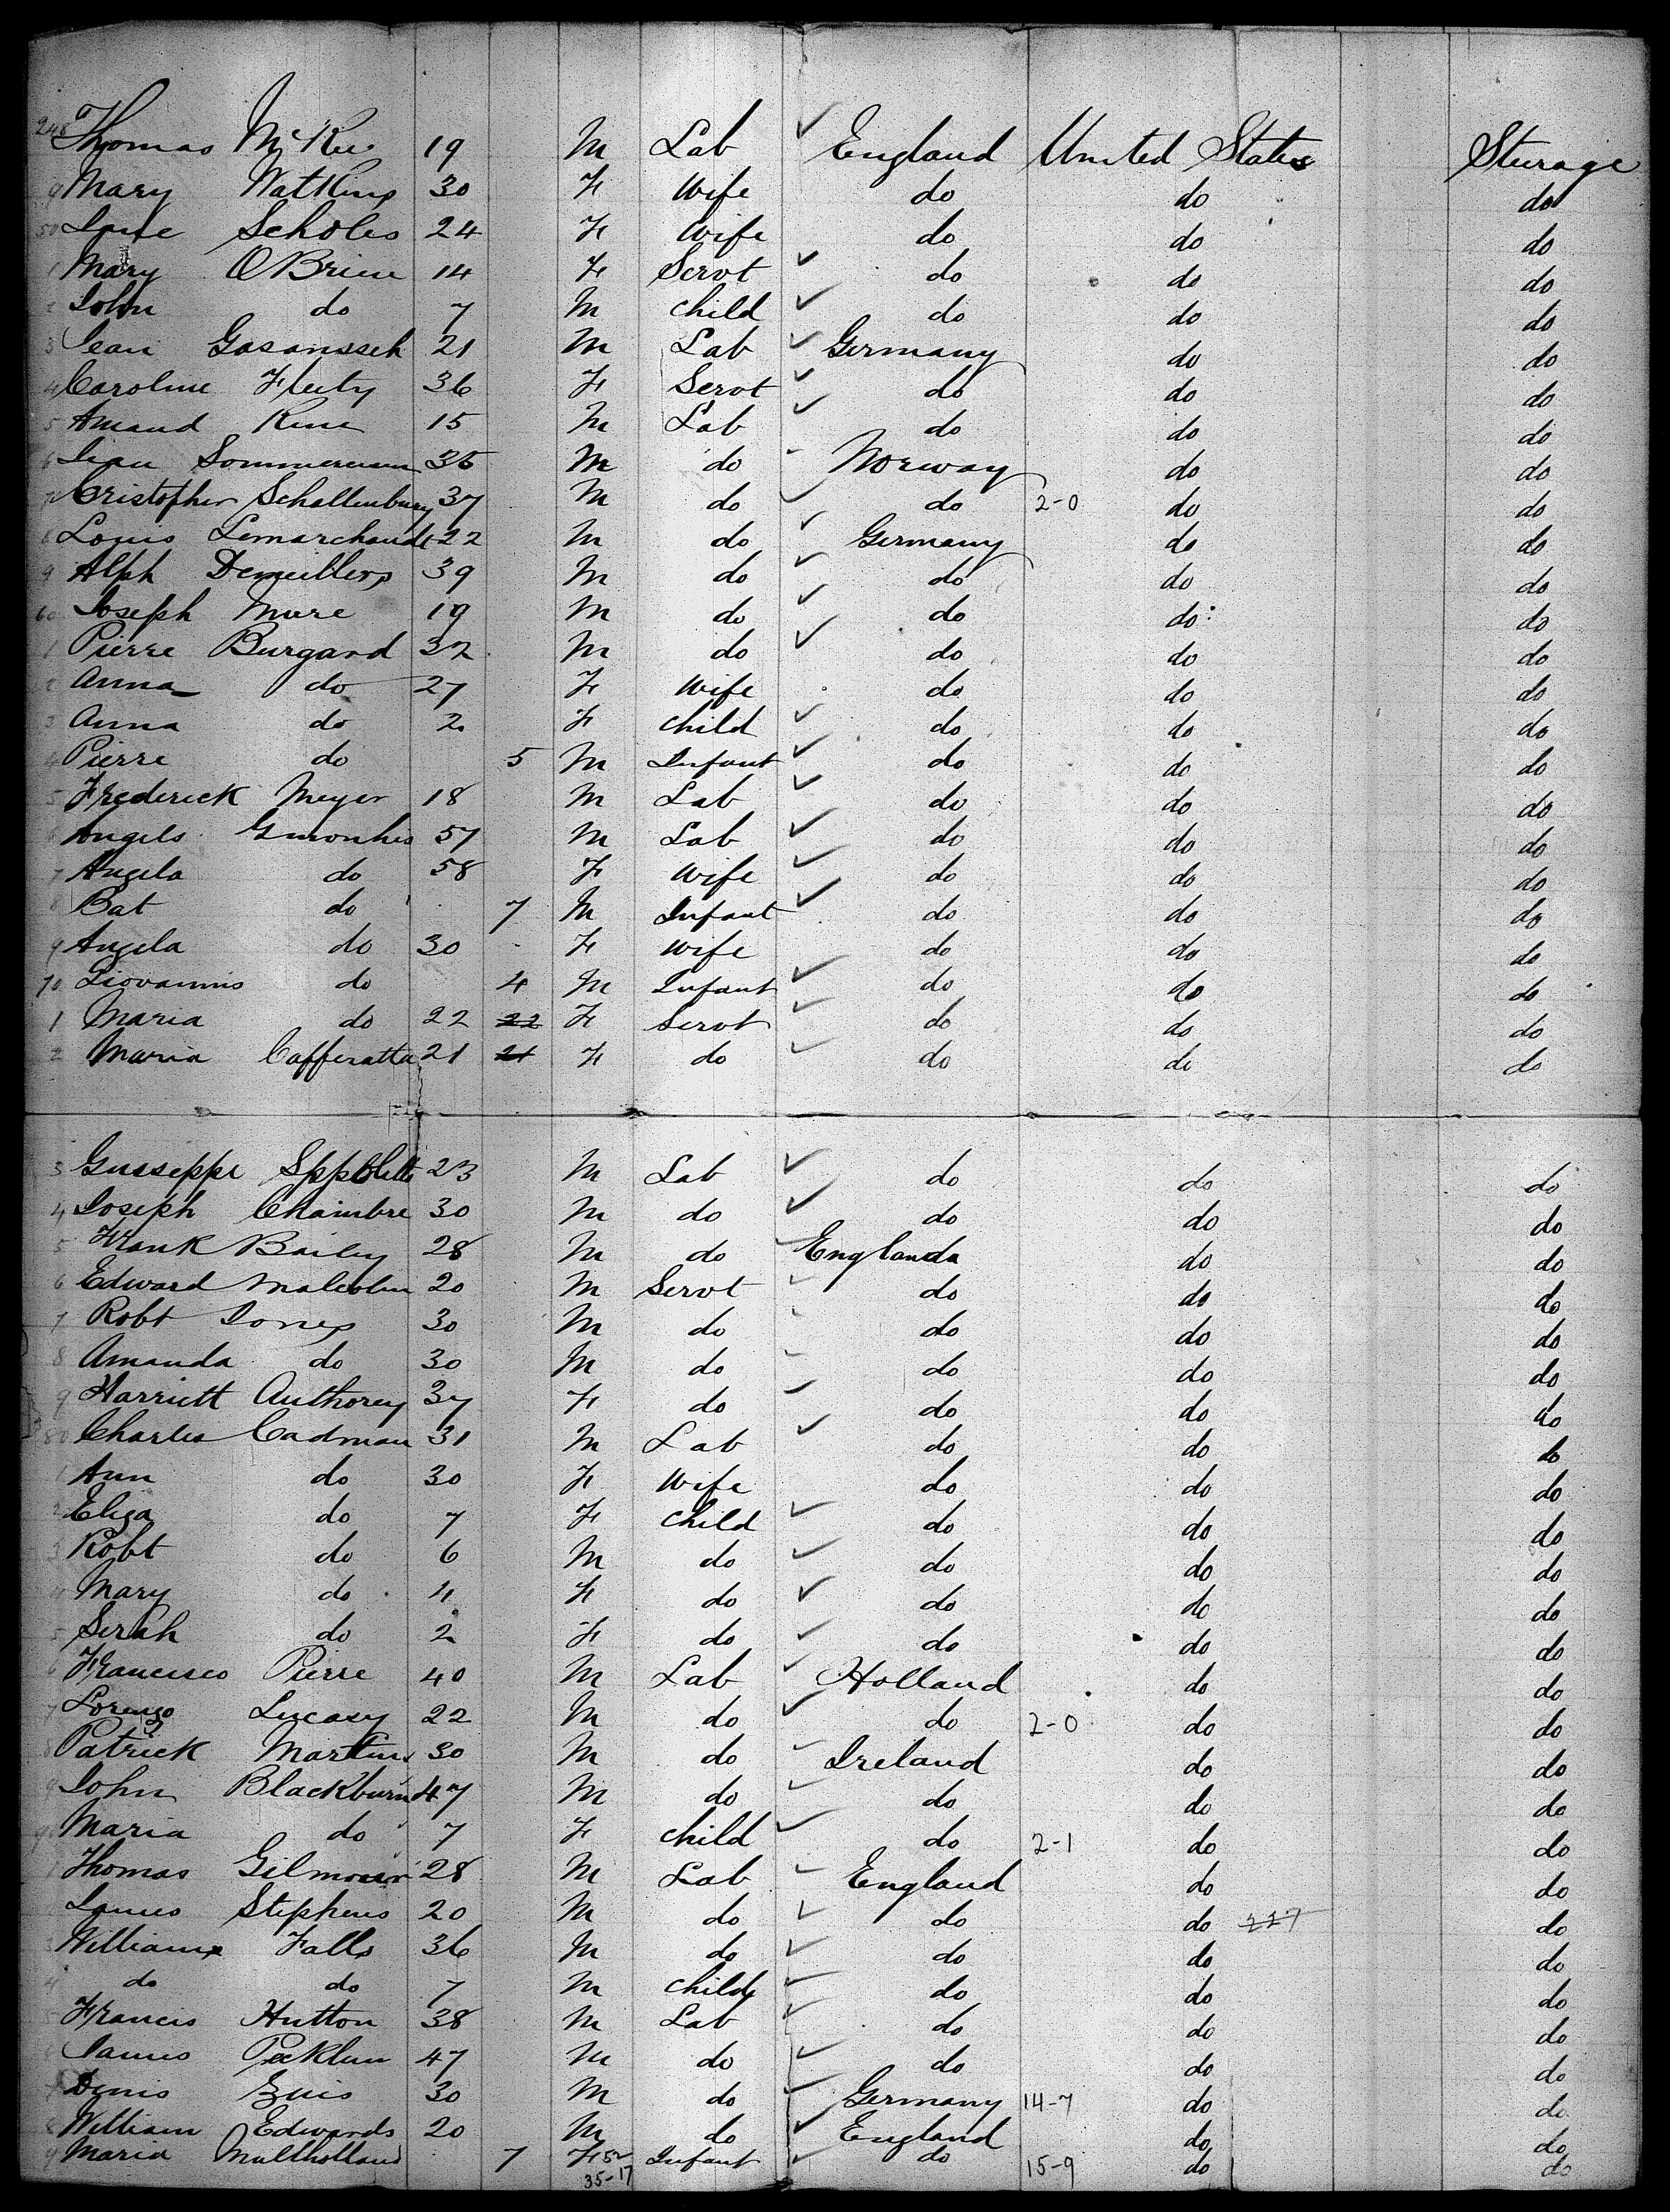 248 Thomas McKee 19 M Lab England United States Sturage
9 Mary Watkins 30 F Wife do do do
50 Jane Scholes 24 F Wife do do do
1 Mary OBrien 14 F Servt do do do
2 John do 7 M child do do do
3 Jean 21 M Lab Germany do do
4 Caroline 36 F Servt do do do
5 Amand 15 M Lab do do do
6 Jean 35 M do Norway do do
7 Cristopher Schallenburg 37 M do do 2-0 do do
8 Louis Lemarchande 22 M do Germany do do
9 Alph Demeillers 39 M do do do do
60 Joseph Mure 19 M do do do do
1 Pierre Burgard 32 M do do do do
2 Anna do 27 F Wife do do do
3 Anna do 2 F child do do do
4 Pierre do 5 M Infant do do do
5 Frederick Meyer 18 M Lab do do do
6 Angelo 57 M Lab do do do
7 Angela do 58 F Wife do do do
8 Bat do 7 M Infant do do do
9 Angela do 30 F Wife do do do
70 Giovannis do 4 M Infant do do do
1 Maria do 22 22 F Servt do do do
2 Maria Cafferatta 21 21 F do do do do
3 Gusseppe 23 M Lab do do do
4 Joseph Chambre 30 M do do do do
5 Frank Bailey 28 M do England do do
6 Edward Malcolm 20 M Servt do do do
7 Robt Jones 30 M do do do do
8 Amanda do 30 M do do do do
9 Harriett Authorey 37 F do do do do
80 Charles Cadman 31 M Lab do do do
1 Ann do 30 F Wife do do do
2 Eliza do 7 F child do do do
3 Robt do 6 M do do do do
4 Mary do 4 F do do do do
5 Serah do 2 F do do do do
6 Francisco Pierre 40 M Lab Holland do do
7 Lorenzo Lucasy 22 M do do 2-0 do do
8 Patrick Martins 30 M do Ireland do do
9 John Blackburn 47 M do do do do
90 Maria do 7 F child do 2-1 do do
1 Thomas Gilmour 28 M Lab England do do
James Stephens 20 M do do do 227 do
3 William Falls 36 M do do do do
4 do do 7 M child do do do
5 Francis Hutton 38 M Lab do do do
6 James 47 M do do do do
7 Denis 30 M do Germany 14-7 do do
8 William Edwards 20 M do England do do
9 Maria Mullholland 7 F 52 Infant do 15-9 do do
35-17